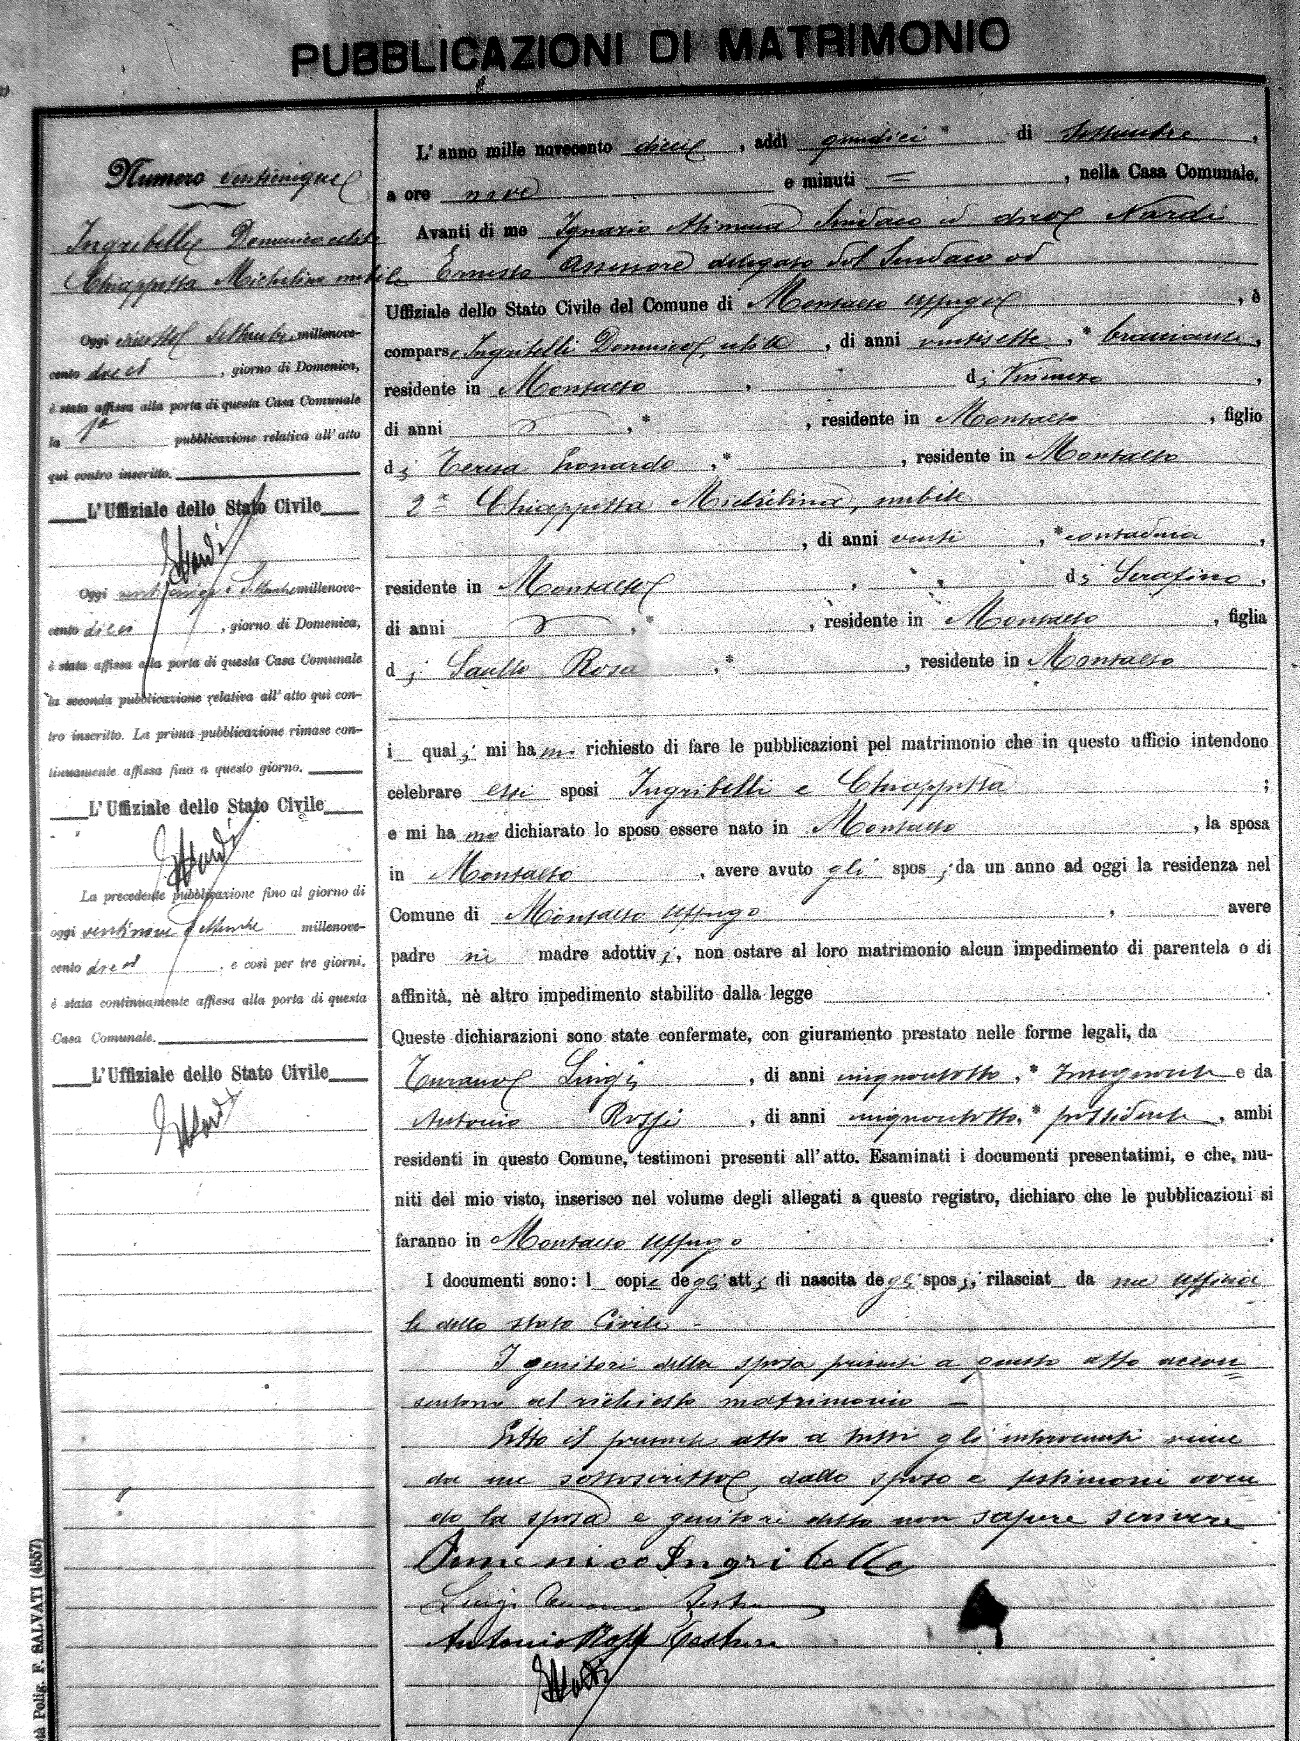 PUBBLICAZIONI DI MATRIMONIO
Numero ventinique
Ingribelli Domenico celibe
Chiappetta Michelina nubile
Oggi diciotto Settembre millenove-
cento dieci, giorno di Domenica,
è stata affissa alla porta di questa Casa Comunale
la 1ª pubblicazione relativa all'atto
qui contro inscritto.
L'Uffiziale dello Stato Civile
ENardi
Oggi venticinque Settembre millenove-
cento dieci, giorno di Domenica,
è stata affissa alla porta di questa Casa Comunale
la seconda pubblicazione relativa all'atto qui con-
tro inscritto. La prima pubblicazione rimase con-
tinuamente affissa fino a questo giorno.
L'Uffiziale dello Stato Civile
ENardi
La precedente pubblicazione fino al giorno di
oggi ventinove Settembre millenove-
cento dieci, e così per tre giorni,
è stata continuamente affissa alla porta di questa
Casa Comunale.
L'Uffiziale dello Stato Civile
ENardi
L'anno mille novecento dieci, addì quindici * di Settembre,
a ore nove e minuti =, nella Casa Comunale.
Avanti di me Ignazio Alimena Sindaco ed Nardi
Ernesto Assessore delegato dal Sindaco ad
Uffiziale dello Stato Civile del Comune di Montalto Uffugo, è
compars Ingribelli Domenico, celibe, di anni ventisette, * bracciante,
residente in Montalto, di Vincenzo,
di anni , * , residente in Montalto, figlio
di Teresa Leonardo, * , residente in Montalto
2ª Chiappetta Michelina, nubile
, di anni venti, * contadina,
residente in Montalto, , di Serafino,
di anni , * , residente in Montalto, figlia
di Saullo Rosa, * , residente in Montalto
i quali mi hanno richiesto di fare le pubblicazioni pel matrimonio che in questo ufficio intendono
celebrare essi sposi Ingribelli e Chiappetta ;
e mi hanno dichiarato lo sposo essere nato in Montalto, la sposa
in Montalto, avere avuto gli sposi da un anno ad oggi la residenza nel
Comune di Montalto Uffugo, avere
padre nè madre adottivi, non ostare al loro matrimonio alcun impedimento di parentela o di
affinità, nè altro impedimento stabilito dalla legge
Queste dichiarazioni sono state confermate, con giuramento prestato nelle forme legali, da
Turano Luigi, di anni vignontotto, * Inserviente e da
Antonio Rossi, di anni vignontotto, * possidente, ambi
residenti in questo Comune, testimoni presenti all'atto. Esaminati i documenti presentatimi, e che, mu-
niti del mio visto, inserisco nel volume degli allegati a questo registro, dichiaro che le pubblicazioni si
faranno in Montalto Uffugo.
I documenti sono: l copie degli atti di nascita degli sposi, rilasciat da me Uffizia
le dello stato Civile -
I genitori della sposa presenti a questo atto accon
sentono al richiesto matrimonio -
Letto il presente atto a tutti gli intervenuti viene
da me sottoscritto, dallo sposo e testimoni aven
do la sposa e genitori detto non sapere scrivere
Domenico Ingribello
Luigi Turano Testim
Antonio Rossi Testimo
ENardi
Polig. F. SALVATI (4557)